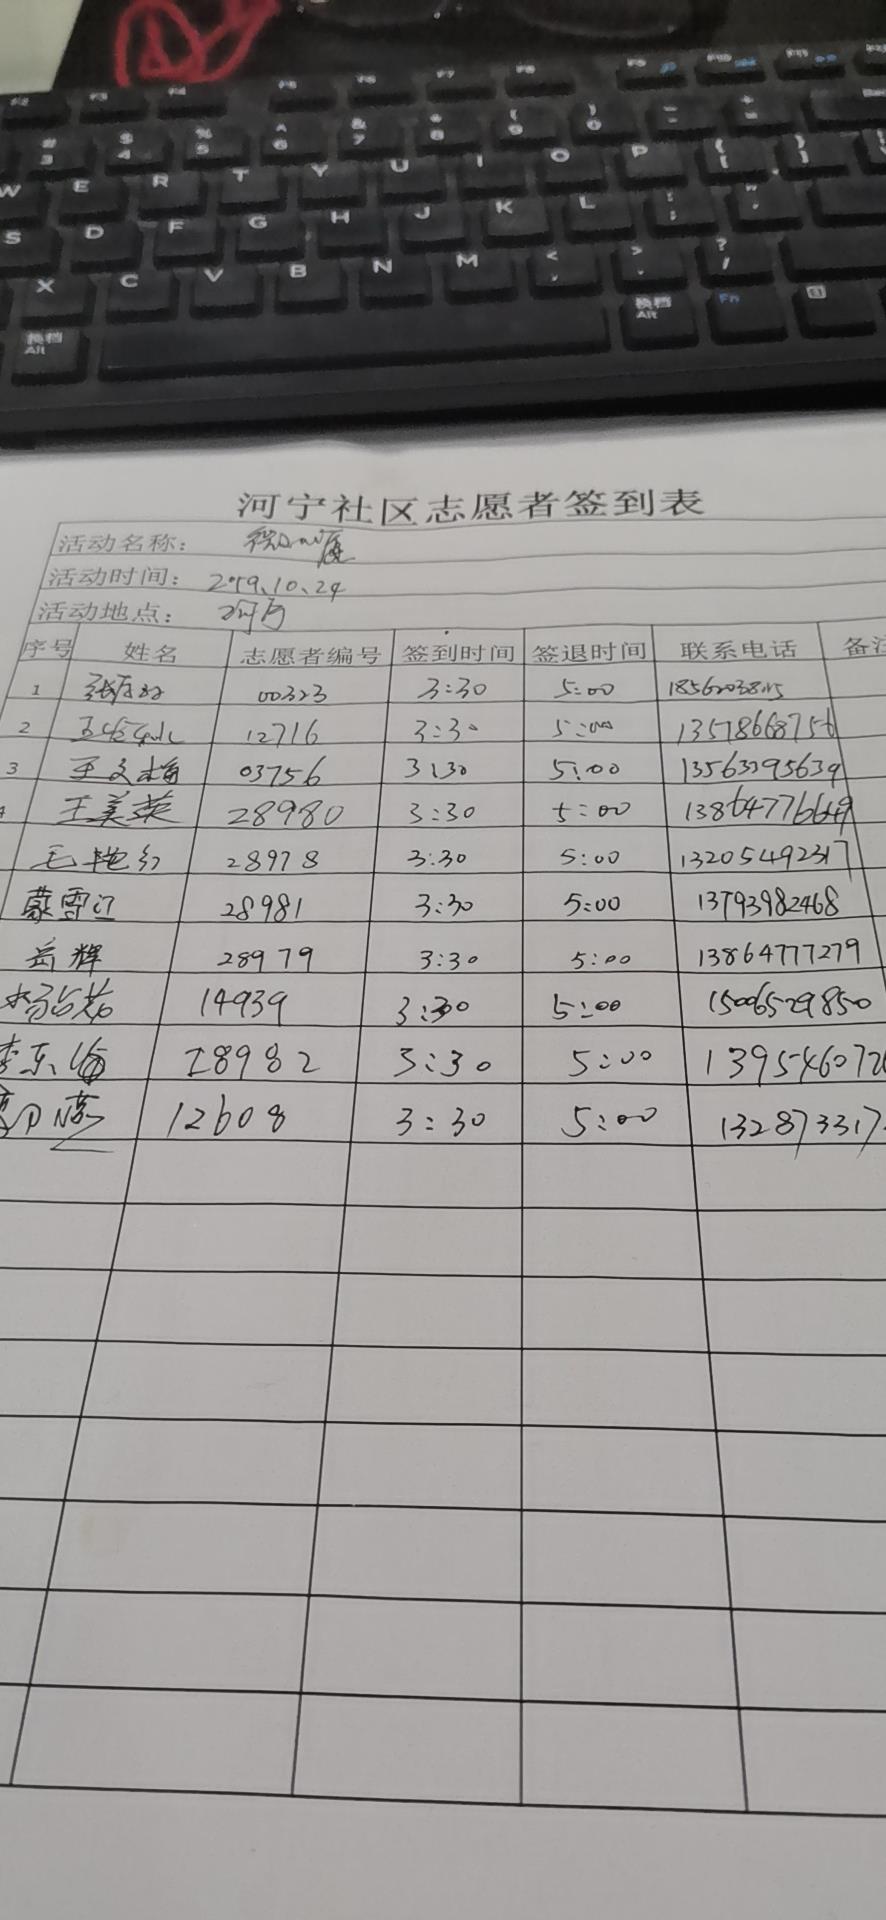 F2 F3 F4 F5 F6 F7 F8 F9 F10 F11
# 3 $ 4 % 5 ^ 6 & 7 * 8 ( 9 ) 0 - + =
W E R T Y U I O P { [ } ]
S D F G H J K L : ; " '
X C V B N M < , > . ? /
换档 Alt 换档 Alt Fn
河宁社区志愿者签到表
活动名称：
活动时间：2019、10、24
活动地点：河宁
序号 姓名 志愿者编号 签到时间 签退时间 联系电话 备注
1 00323 3:30 5:00
2 12716 3:30 5:00 13578668756
3 王文梅 03756 3:30 5:00 13563395639
4 王美英 28980 3:30 5:00
毛艳红 28978 3:30 5:00 13205492317
蒙雪江 28981 3:30 5:00 13793982468
岳辉 28979 3:30 5:00 13864777279
14939 3:30 5:00 1506529850
李东海 28982 3:30 5:00 1395460
12608 3:30 5:00 132873317